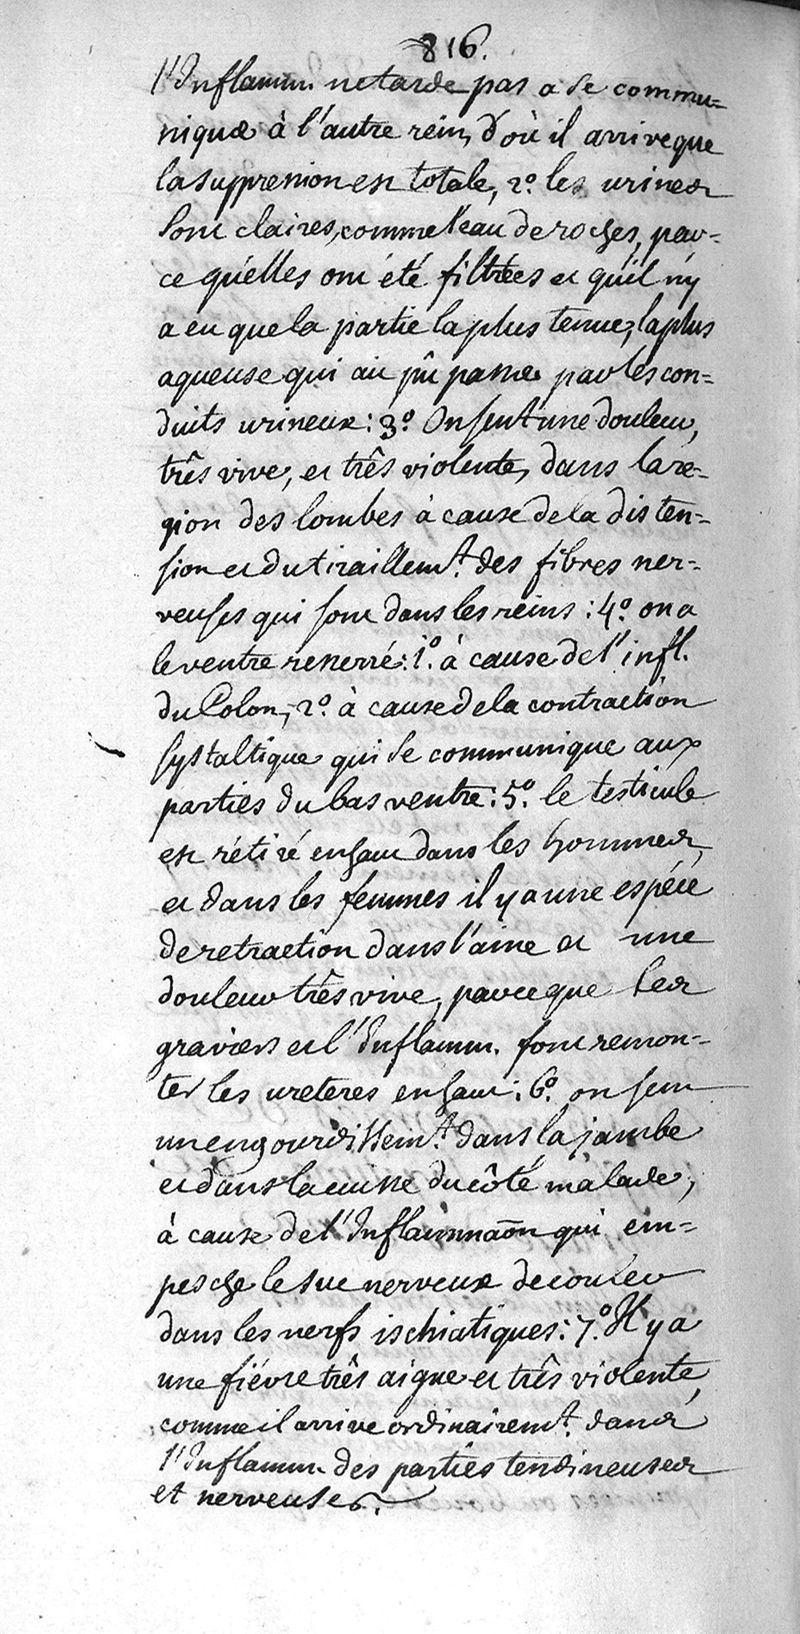 816.
l'Inflamm. ne tarde pas a se commu=
niquer à l'autre rein, d'où il arrive que
la suppression est totale, 2.º les urines
sont claires, comme l'eau de roches, par=
ce qu'elles ont été filtrées et qu'il n'y
a eu que la partie la plus tenue, la plus
aqueuse qui ait pû passer par les con=
duits urineux: 3.º On sent une douleur,
três vive, et três violente, dans la re=
gion des lombes à cause de la disten=
sion et du tiraillem.t des fibres ner=
veuses qui sont dans les reins: 4.º on a
le ventre resserré: 1.º à cause de l'infl.
du Colon, 2.º à cause de la contraction
systaltique qui se communique aux
parties du bas ventre: 5.º le testicule
est rétiré en haut dans les hommes,
et dans les femmes il y a une espéce
de retraction dans l'aine et une
douleur três vive, parce que les
graviers et l'Inflamm. font remon=
ter les ureteres en haut: 6.º on sent
un engourdissem.t dans la jambe
et dans la cuisse du côté malade,
à cause de l'Inflammaõn qui em=
pesche le suc nerveux de couler
dans les nerfs ischiatiques: 7.º Il y a
une fiévre três aigue et três violente,
comme il arrive ordinairem.t dans
l'Inflamm. des parties tendineuses
et nerveuses.